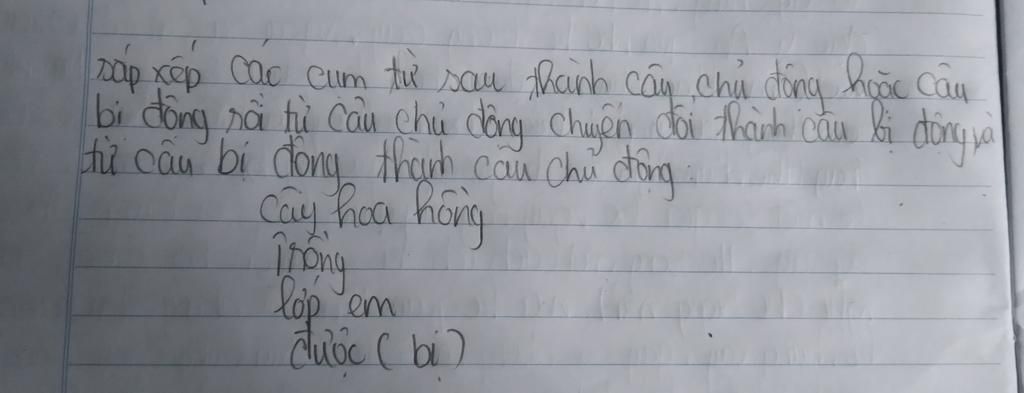 sáp xếp các cum từ sau thành câu chủ động hoặc câu
bị động rồi từ câu chủ động chuyển đổi thành câu bị động và
từ câu bị động thành câu chủ động.
Cây hoa hồng
Trồng
lớp em
được (bị)